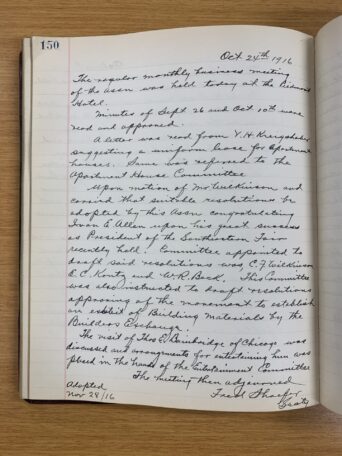 150
Oct 24th 1916
The regular monthly business meeting
of the Assn was held today at the Piedmont
Hotel.
Minutes of Sept 26 and Oct 10th were
read and approved.
A letter was read from V. H.
suggesting a uniform lease for apartment
houses. Same was referred to the
Apartment House Committee
Upon motion of Mr Wilkinson and
carried that suitable resolutions be
adopted by this Assn congratulating
Ivan E Allen upon his great success
as President of the Southeastern Fair
recently held. Committee appointed to
draft said resolutions was C. F. Wilkinson
and W. R. Beck. This Committee
was also instructed to draft resolutions
approving of the movement to establish
an exhibit of Building Materials by the
Builders Exchange.
The visit of Thos E. Bainbridge of Chicago was
discussed and arrangements for entertaining him was
placed in the hands of the Entertainment Committee
The meeting then adjourned
Adopted
Nov 28/16